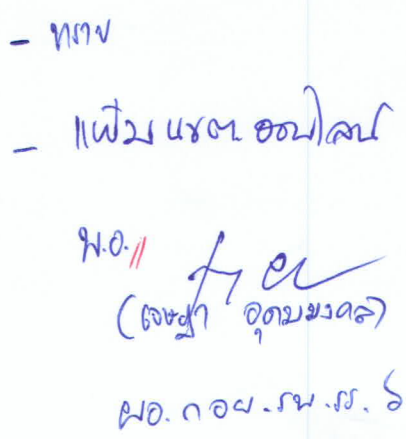 - ทราบ
- แฟ้ม แชต ออนไลน์
พ.อ.
(เจษฎา อุดมมงคล)
ผอ.กอย.รพ.รร.6